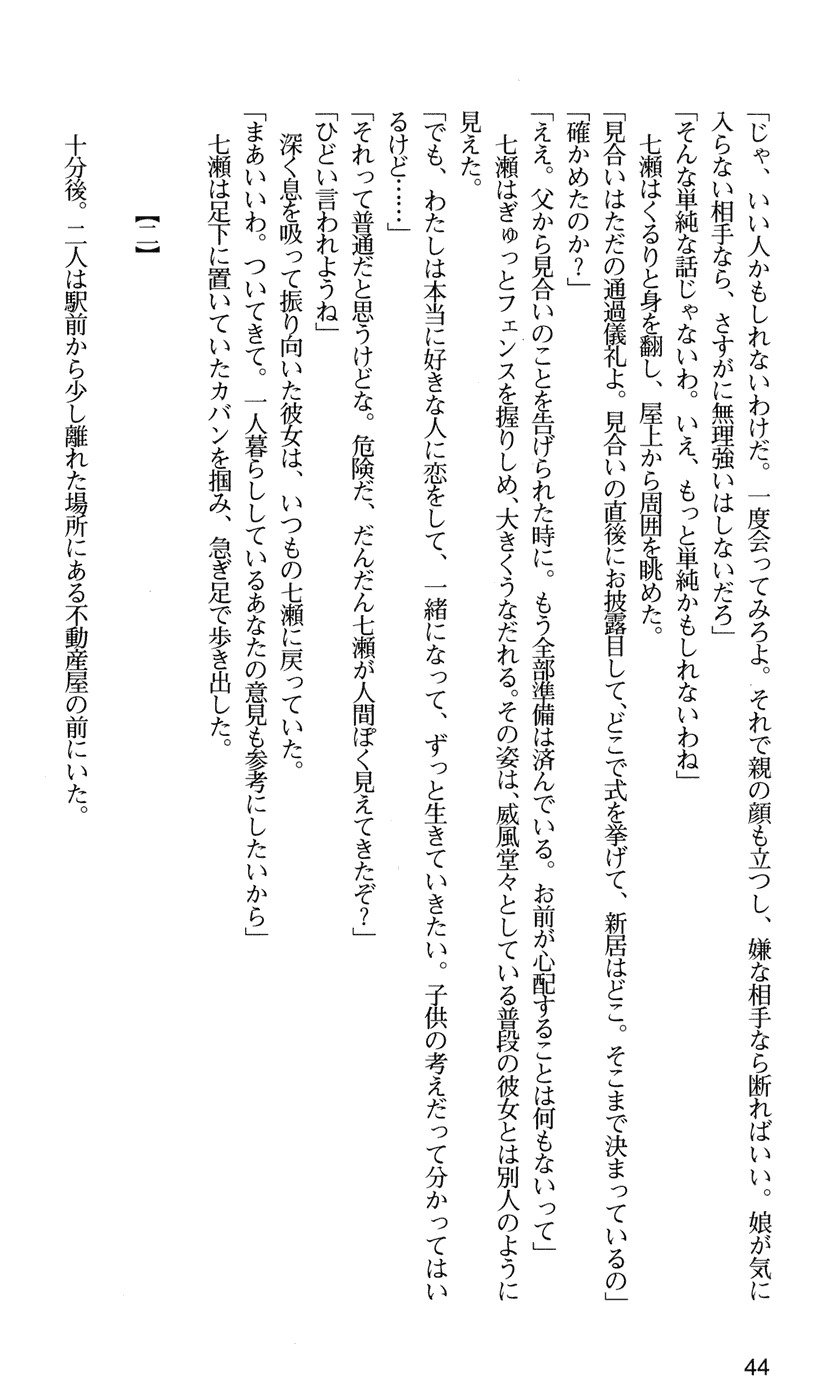 「じゃ、いい人かもしれないわけだ。一度会ってみろよ。それで親の顔も立つし、嫌な相手なら断ればいい。娘が気に
入らない相手なら、さすがに無理強いはしないだろ」
「そんな単純な話じゃないわ。いえ、もっと単純かもしれないわね」
七瀬はくるりと身を翻し、屋上から周囲を眺めた。
「見合いはただの通過儀礼よ。見合いの直後にお披露目して、どこで式を挙げて、新居はどこ。そこまで決まっているの」
「確かめたのか？」
「ええ。父から見合いのことを告げられた時に。もう全部準備は済んでいる。お前が心配することは何もないって」
七瀬はぎゅっとフェンスを握りしめ、大きくうなだれる。その姿は、威風堂々としている普段の彼女とは別人のように
見えた。
「でも、わたしは本当に好きな人に恋をして、一緒になって、ずっと生きていきたい。子供の考えだって分かってはい
るけど……」
「それって普通だと思うけどな。危険だ、だんだん七瀬が人間ぽく見えてきたぞ？」
「ひどい言われようね」
深く息を吸って振り向いた彼女は、いつもの七瀬に戻っていた。
「まあいいわ。ついてきて。一人暮らししているあなたの意見も参考にしたいから」
七瀬は足下に置いていたカバンを掴み、急ぎ足で歩き出した。
【二】
十分後。二人は駅前から少し離れた場所にある不動産屋の前にいた。
44